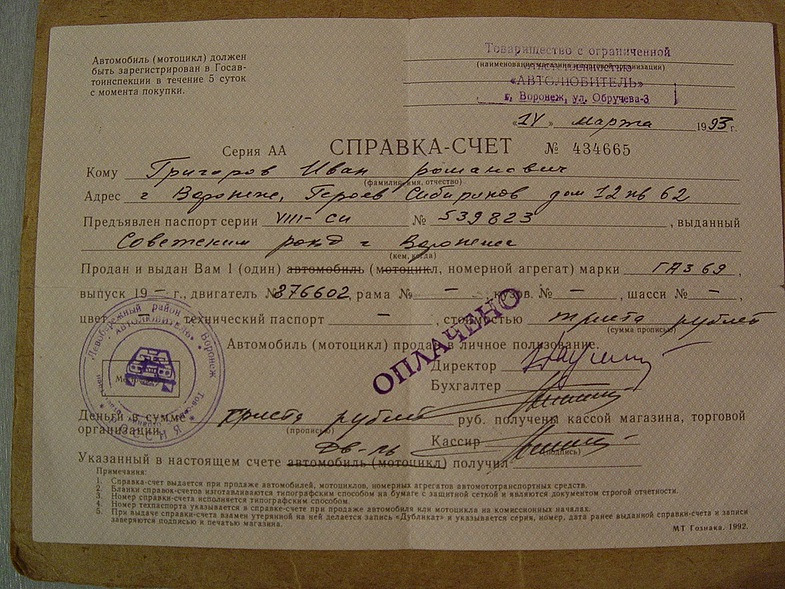 Автомобиль (мотоцикл) должен
быть зарегистрирован в Госав-
тоинспекции в течение 5 суток
с момента покупки.
Товарищество с ограниченной
ответственностью
(наименование магазина и торговой организации)
«АВТОЛЮБИТЕЛЬ»
г. Воронеж, ул. Обручева-3
«14» марта 1993 г.
Серия АА СПРАВКА-СЧЕТ № 434665
Кому Григоров Иван романович
(фамилия, имя, отчество)
Адрес г Воронеж, Героев Сибиряков дом 12 кв 62
Предъявлен паспорт серии VIII-СИ № 539823, выданный
Советским г Воронежа
(кем, когда)
Продан и выдан Вам 1 (один) автомобиль (мотоцикл, номерной агрегат) марки ГАЗ 69,
выпуск 19 — г., двигатель № 876602, рама № —, кузов. № —, шасси № —,
цвет — технический паспорт —, стоимостью триста рублей
(сумма прописью)
Автомобиль (мотоцикл) продан в личное пользование.
ОПЛАЧЕНО
Директор
Бухгалтер
Левобережный район г. Воронеж
"АВТОЛЮБИТЕЛЬ"
РОССИЯ
Деньги в сумме триста рублей руб. получены кассой магазина, торговой
(прописью)
организации. Кассир
(подпись)
дв-ль
Указанный в настоящем счете автомобиль (мотоцикл) получил
Примечания:
1. Справка-счет выдается при продаже автомобилей, мотоциклов, номерных агрегатов автомототранспортных средств.
2. Бланки справок-счетов изготавливаются типографским способом на бумаге с защитной сеткой и являются документом строгой отчетности.
3. Номер справки-счета исполняется типографским способом.
4. Номер техпаспорта указывается в справке-счете при продаже автомобиля или мотоцикла на комиссионных началах.
5. При выдаче справки-счета взамен утерянной на ней делается запись «Дубликат» и указывается серия, номер, дата ранее выданной справки-счета и записи
заверяются подписью и печатью магазина.
МТ Гознака. 1992.